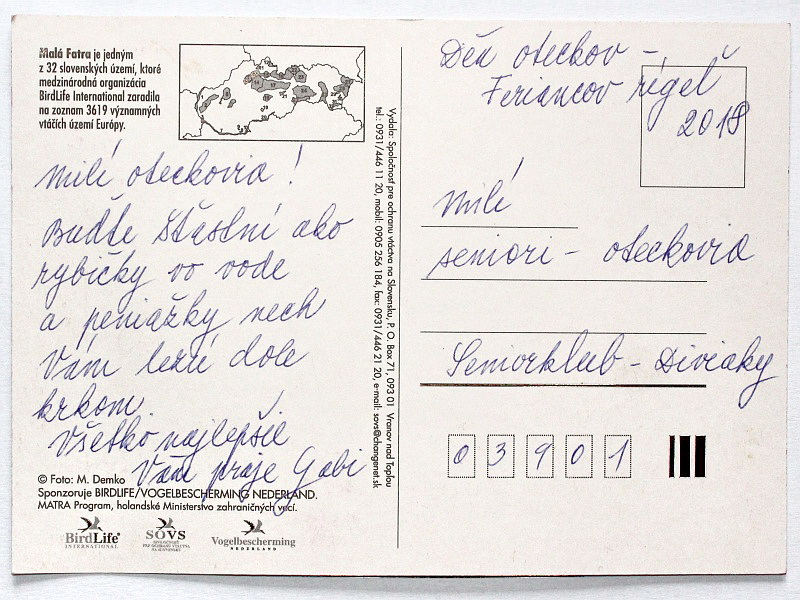 Malá Fatra je jedným
z 32 slovenských území, ktoré
medzinárodná organizácia
BirdLife International zaradila
na zoznam 3619 významných
vtáčích území Európy.
Milí oteckovia!
Buďte šťastní ako
rybičky vo vode
a peniažky nech
Vám lezú dole
krkom.
Všetko najlepšie
Vám praje Gabi
© Foto: M. Demko
Sponzoruje BIRDLIFE/VOGELBESCHERMING NEDERLAND.
MATRA Program, holandské Ministerstvo zahraničných vecí.
BirdLife®
INTERNATIONAL
SOVS
SPOLOČNOSŤ
PRE OCHRANU VTÁCTVA
NA SLOVENSKU
Vogelbescherming
NEDERLAND
Vydala: Spoločnosť pre ochranu vtáctva na Slovensku, P. O. Box 71, 093 01 Vranov nad Topľou
tel.: 0931/446 11 20, mobil: 0905 256 184, fax: 0931/446 21 20, e-mail: sovs@changenet.sk
Deň oteckov -
Feriancov
2018
Milí
seniori - oteckovia
Seniorklub - Diviaky
03901